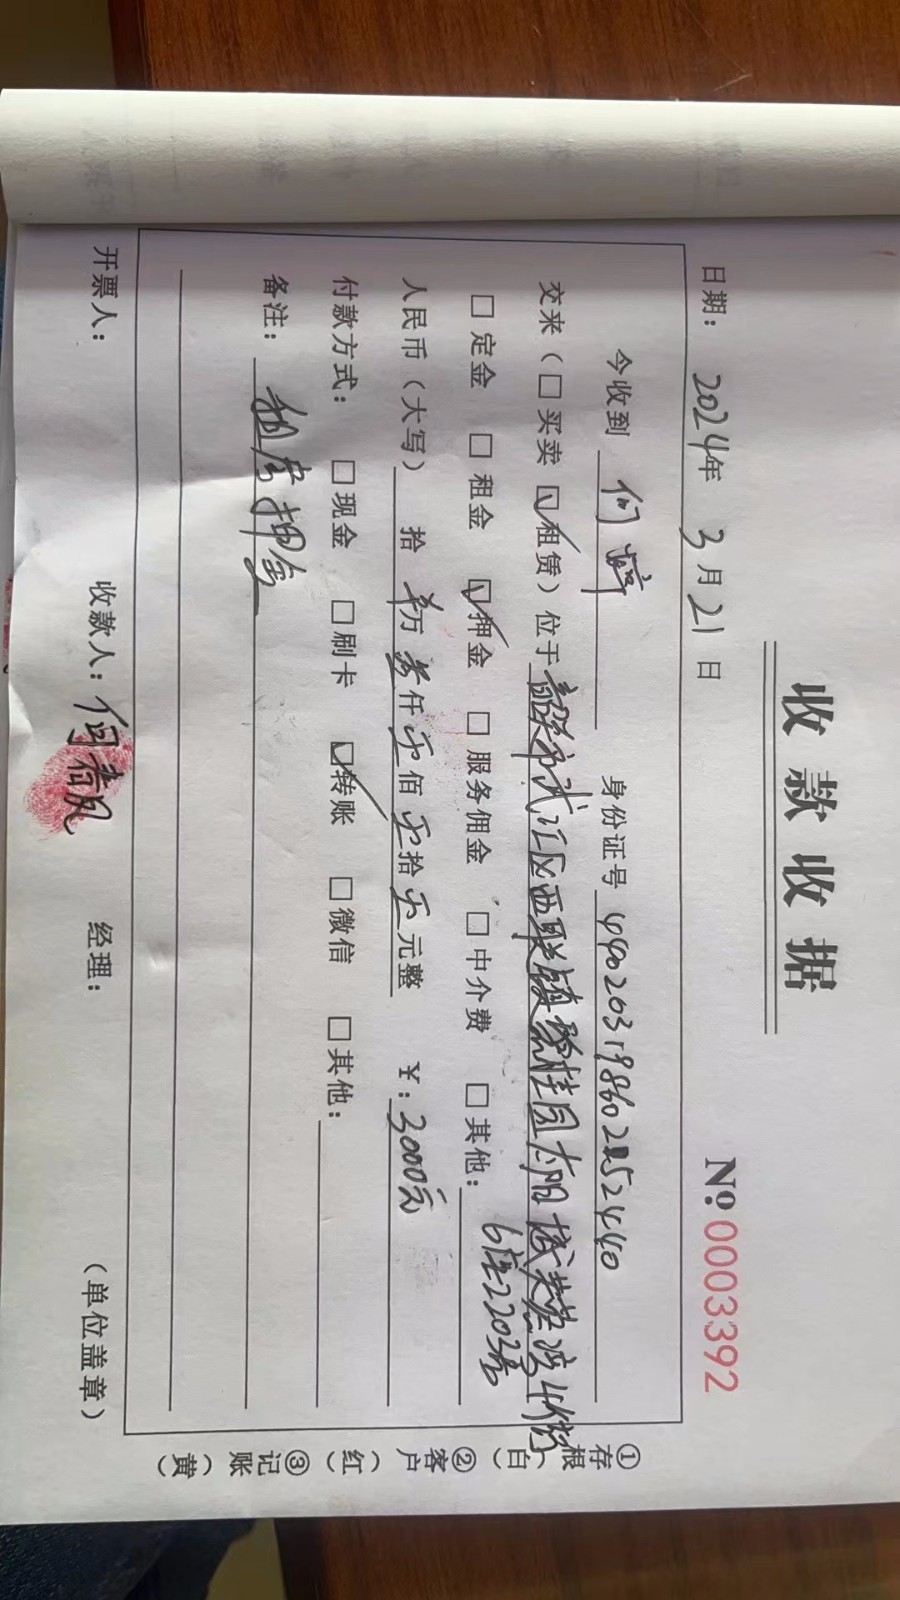 收款收据
№ 0003392
日期：2024年 3月21日
今收到 身份证号
交来（□买卖 ☑租赁）位于韶关市武江区西联镇碧桂园太阳城芙蓉湾4街
□定金 □租金 ☑押金 □服务佣金 □中介费 □其他： 6座2203房
人民币（大写） 拾 万叁仟零佰零拾零元整 ¥：3000元
付款方式： □现金 □刷卡 ☑转账 □微信 □其他：
备注： 租房押金
开票人： 收款人：何春风 经理： （单位盖章）
①存根（白）②客户（红）③记账（黄）